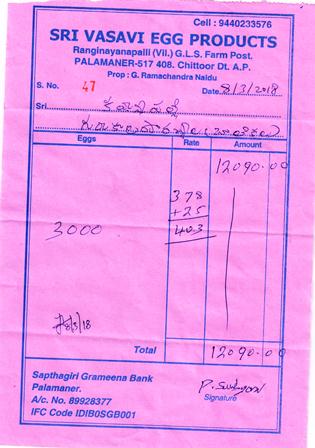 Cell : 9440233576
SRI VASAVI EGG PRODUCTS
Ranginayanapalli (Vil.) G.L.S. Farm Post.
PALAMANER-517 408. Chittoor Dt. A.P.
Prop : G. Ramachandra Naidu
S. No. 47 Date 8/3/2018
Sri.
Eggs Rate Amount
12090.00
378
+25
3000 403
8/3/18
Total 12090.00
Sapthagiri Grameena Bank
Palamaner.
A/c No. 89928377
IFC Code IDIB0SGB001
Signature